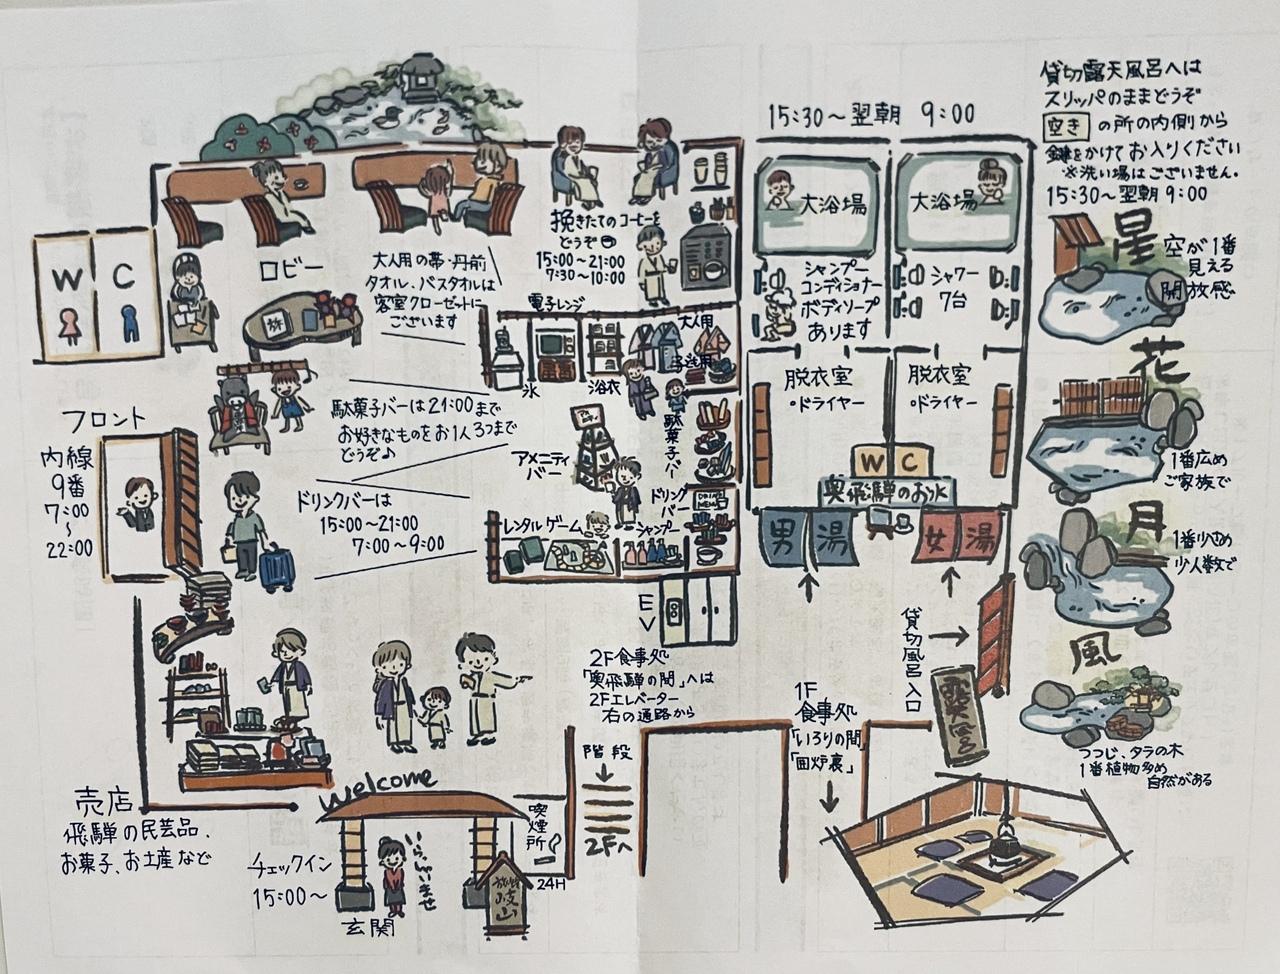 貸切露天風呂へは
スリッパのままどうぞ
空き の所の内側から
鍵をかけてお入りください
※洗い場はございません。
15:30〜翌朝 9:00
15:30〜翌朝 9:00
大浴場
大浴場
シャンプー
コンディショナー
ボディソープ
あります
シャワー
7台
脱衣室
・ドライヤー
脱衣室
・ドライヤー
WC
奥飛騨のお水
男湯
女湯
星
空が1番
見える
開放感
花
1番広め
ご家族で
月
1番小さめ
少人数で
風
つつじ、タラの木
1番植物多め
自然がある
貸切風呂入口
露天風呂
挽きたてのコーヒーを
どうぞ
15:00〜21:00
7:30〜10:00
W C
ロビー
大人用の帯・丹前
タオル、バスタオルは
客室クローゼットに
ございます
電子レンジ
氷
浴衣
大人用
子ども用
フロント
内線
9番
7:00
〜
22:00
駄菓子バーは21:00まで
お好きなものをお1人3つまで
どうぞ♪
駄菓子バー
アメニティ
バー
ドリンクバーは
15:00〜21:00
7:00〜9:00
ドリンク
バー
レンタルゲーム
シャンプー
EV
2F食事処
「奥飛騨の間」へは
2Fエレベーター
右の通路から
1F
食事処
「いろりの間」
「囲炉裏」
階段
2Fへ
welcome
売店
飛騨の民芸品、
お菓子、お土産など
チェックイン
15:00〜
いらっしゃいませ
玄関
喫煙所
24H